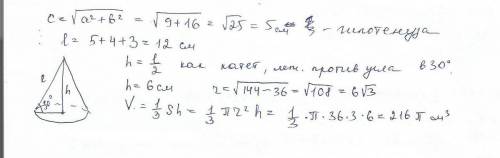 c = √a²+b² = √9+16 = √25 = 5 см - гипотенуза
l = 5+4+3 = 12 см
h = l/2 как катет, леж. против угла в 30°.
h = 6 см r = √144-36 = √108 = 6√3
V = 1/3 Sh = 1/3 πr² h = 1/3 · π · 36 · 3 · 6 = 216 π см³
l
h
30°